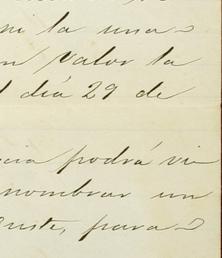 ni la una
Valor la
día 29 de
podrá vi
nombrar un
para